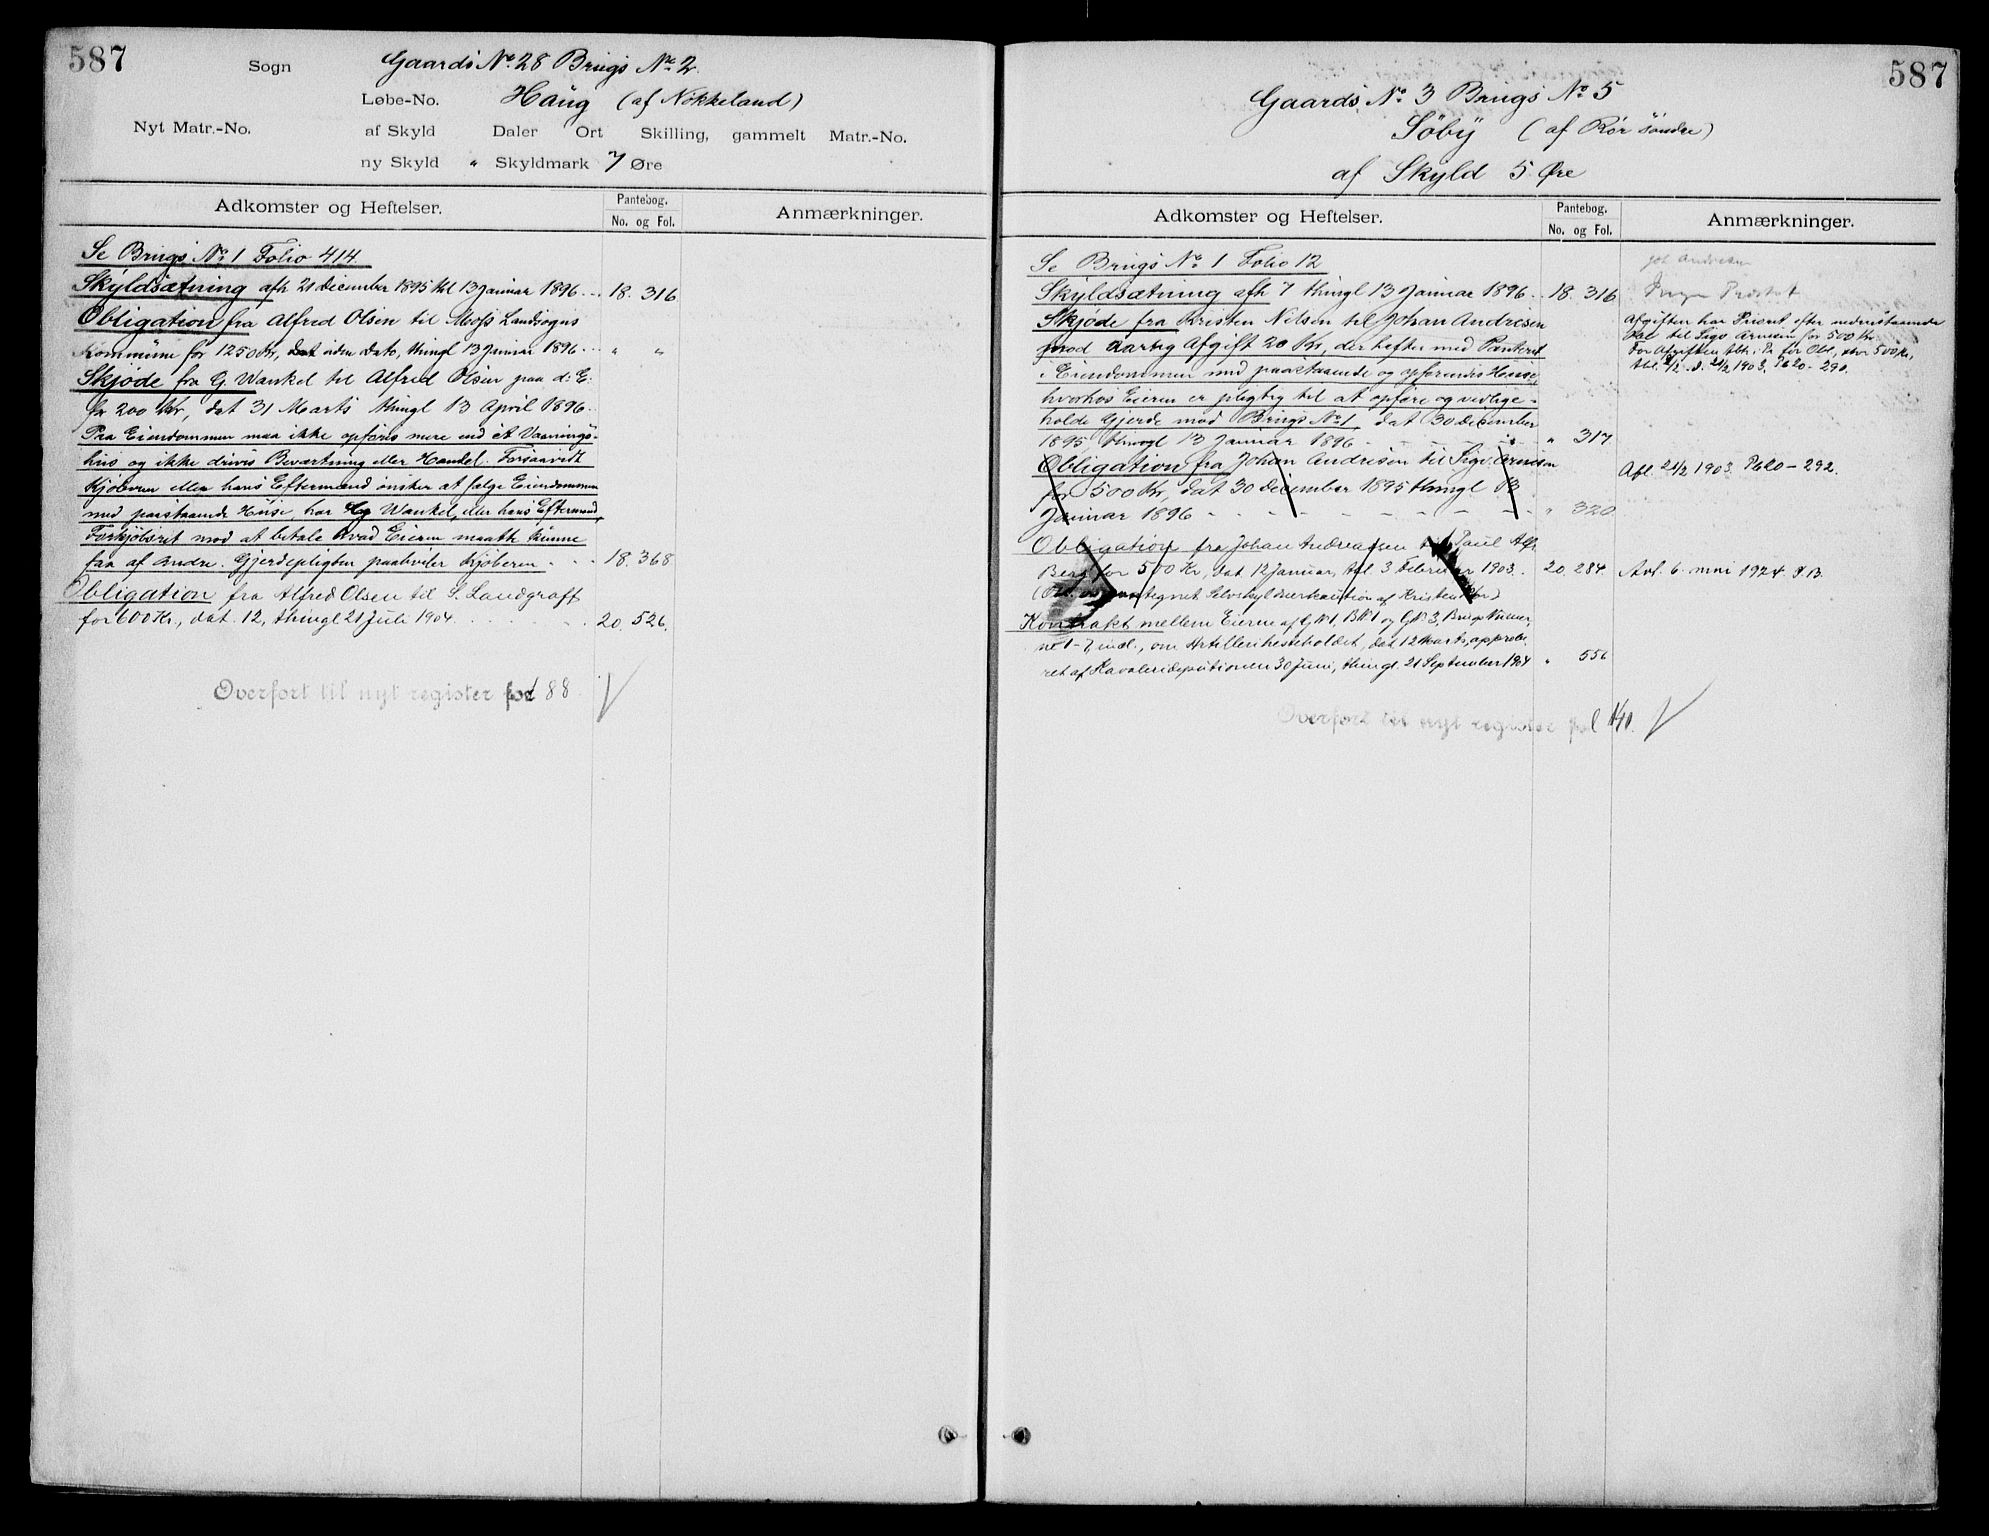 587
Sogn
Gaards No. 28 Brugs No. 2.
Løbe-No. Haug (af Nökkeland)
Nyt Matr.-No. af Skyld Daler Ort Skilling, gammelt Matr.-No.
ny Skyld " Skyldmark 7 Øre
Adkomster og Heftelser. Pantebog. No. og Fol. Anmærkninger.
Se Brugs No. 1 Folio 414
Skyldsætning afh 21 December 1895 thl 13 Januar 1896 18. 316
Obligation fra Alfred Olsen til Moss Landsogns
Kommune for 1250 Kr, uden Dato, thingl 13 Januar 1896 " "
Skjøde fra G. Wankel til Alfred Olsen paa d: E:
for 200 Kr, dat 31 Marts thingl 13 April 1896.
Paa Eiendommen maa ikke opføres mere end et Vaanings-
hus og ikke drives Beværtning eller Handel. Forsaavidt
Kjøberen eller hans Eftermænd ønsker at sælge Eiendommen
med paastaaende Huse, har Wankel, eller hans Eftermænd,
Forkjøbsret mod at betale hvad Eieren maatte kunne
faa af Andre. Gjerdepligten paahviler Kjøberen 18. 368
Obligation fra Alfred Olsen til S. Landgraff
for 600 Kr., dat. 12, thingl 21 Juli 1904 20. 526.
Overført til nyt register fol 88
587
Gaards No 3 Brugs No 5
Söby (af Rör söndre)
af Skyld 5 Øre
Adkomster og Heftelser. Pantebog. No. og Fol. Anmærkninger.
Se Brugs No. 1 Folio 12
Joh Andresen
Skyldsætning afh 7 thingl 13 Januar 1896 18. 316
Skjøde fra Kristen Nilsen til Johan Andresen
mod aarlig Afgift 20 Kr, der hefter med Panteret
i Eiendommen med paastaaende og opførendes Huse,
hvorhos Eieren er pligtig til at opføre og vedlige-
holde Gjerde mod Brugs No 1, dat 30 December
1895 thingl 13 Januar 1896 " 317
Afgiften har Prioret efter nedenstaaende
Obl til Sigv Arnesen for 500 Kr.
For Afgiften for Obl, stor 500 Kr,
1903, P620-290.
Obligation fra Johan Andresen til Sigv. Arnesen
for 500 Kr, dat 30 December 1895 thingl 13
Januar 1896 " 320
Afl. 24/2 1903. P620-292.
Obligation fra Johan Andreassen til Paul Alfr.
Berg for 500 Kr, dat 12 Januar, thl. 3 Februar 1903. 20. 284. Avl. 6. mai 1924. J.B.
Selvskyldnerkaution af Kristen Rör)
Kontrakt mellem Eierne af GN1, BN1 og GN. 3, Brugs Numer,
ne 1-7 incl., om Artillerihesteholdet, dat 12 Marts, approbe
ret af Kavalerideputationen 30 Juni, thingl. 21 September 1904 " 556
Overført til nyt register fol 140.